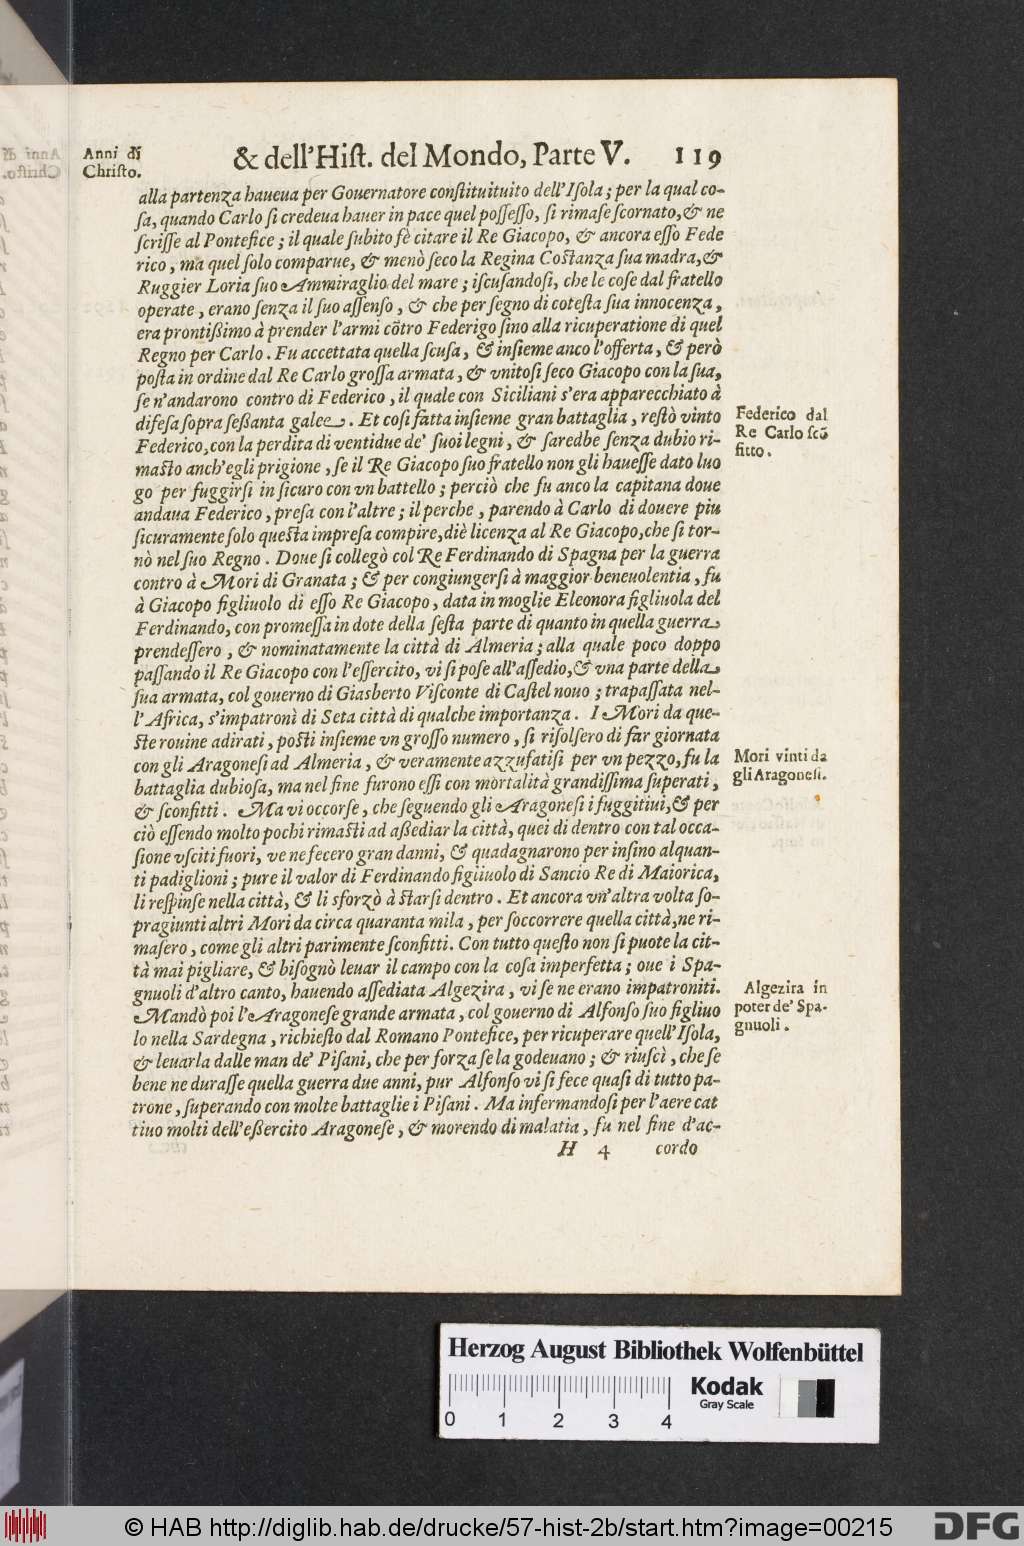 Anni di
Christo.
& dell'Hiſt. del Mondo, Parte V. 119
alla partenza haueua per Gouernatore conſtituituito dell'Iſola; per la qual co-
ſa, quando Carlo ſi credeua hauer in pace quel poſſeſſo, ſi rimaſe ſcornato, & ne
ſcriſſe al Pontefice; il quale ſubito fè citare il Re Giacopo, & ancora eſſo Fede
rico, ma quel ſolo comparue, & menò ſeco la Regina Coſtanza ſua madra, &
Ruggier Loria ſuo Ammiraglio del mare; iſcuſandoſi, che le coſe dal fratello
operate, erano ſenza il ſuo aſſenſo, & che per ſegno di coteſta ſua innocenza,
era prontißimo à prender l'armi cōtro Federigo ſino alla ricuperatione di quel
Regno per Carlo. Fu accettata quella ſcuſa, & inſieme anco l'offerta, & però
poſta in ordine dal Re Carlo groſſa armata, & vnitoſi ſeco Giacopo con la ſua,
ſe n'andarono contro di Federico, il quale con Siciliani s'era apparecchiato à
difeſa ſopra ſeßanta galee. Et coſi fatta inſieme gran battaglia, reſtò vinto
Federico, con la perdita di ventidue de' ſuoi legni, & ſaredbe ſenza dubio ri-
maſto anch'egli prigione, ſe il Re Giacopo ſuo fratello non gli haueſſe dato luo
go per fuggirſi in ſicuro con vn battello; perciò che fu anco la capitana doue
andaua Federico, preſa con l'altre; il perche, parendo à Carlo di douere piu
ſicuramente ſolo queſta impreſa compire, diè licenza al Re Giacopo, che ſi tor-
nò nel ſuo Regno. Doue ſi collegò col Re Ferdinando di Spagna per la guerra
contro à Mori di Granata; & per congiungerſi à maggior beneuolentia, fu
à Giacopo figliuolo di eſſo Re Giacopo, data in moglie Eleonora figliuola del
Ferdinando, con promeſſa in dote della ſeſta parte di quanto in quella guerra
prendeſſero, & nominatamente la città di Almeria; alla quale poco doppo
paſſando il Re Giacopo con l'eſſercito, vi ſi poſe all'aſſedio, & vna parte della
ſua armata, col gouerno di Giasberto Viſconte di Caſtel nouo; trapaſſata nel-
l'Africa, s'impatronì di Seta città di qualche importanza. I Mori da que-
ſte rouine adirati, poſti inſieme vn groſſo numero, ſi riſolſero di far giornata
con gli Aragoneſi ad Almeria, & veramente azzufatiſi per vn pezzo, fu la
battaglia dubioſa, ma nel fine furono eſſi con mortalità grandiſſima ſuperati,
& ſconfitti. Ma vi occorſe, che ſeguendo gli Aragoneſi i fuggitiui, & per
ciò eſſendo molto pochi rimaſti ad aßediar la città, quei di dentro con tal occa-
ſione vſciti fuori, ve ne fecero gran danni, & quadagnarono per inſino alquan-
ti padiglioni; pure il valor di Ferdinando figliuolo di Sancio Re di Maiorica,
li reſpinſe nella città, & li sforzò à ſtarſi dentro. Et ancora vn'altra volta ſo-
pragiunti altri Mori da circa quaranta mila, per ſoccorrere quella città, ne ri-
maſero, come gli altri parimente ſconfitti. Con tutto queſto non ſi puote la cit-
tà mai pigliare, & biſognò leuar il campo con la coſa imperfetta; oue i Spa-
gnuoli d'altro canto, hauendo aſſediata Algezira, vi ſe ne erano impatroniti.
Mandò poi l'Aragoneſe grande armata, col gouerno di Alfonſo ſuo figliuo
lo nella Sardegna, richieſto dal Romano Pontefice, per ricuperare quell'Iſola,
& leuarla dalle man de' Piſani, che per forza ſe la godeuano; & riuſcì, che ſe
bene ne duraſſe quella guerra due anni, pur Alfonſo vi ſi fece quaſi di tutto pa-
trone, ſuperando con molte battaglie i Piſani. Ma infermandoſi per l'aere cat
tiuo molti dell'eßercito Aragoneſe, & morendo di malatia, fu nel fine d'ac-
H 4 cordo
Federico dal
Re Carlo ſcō
fitto.
Mori vinti da
gli Aragoneſi.
Algezira in
poter de' Spa-
gnuoli.
Herzog August Bibliothek Wolfenbüttel
0 1 2 3 4
Kodak
Gray Scale
© HAB http://diglib.hab.de/drucke/57-hist-2b/start.htm?image=00215
DFG